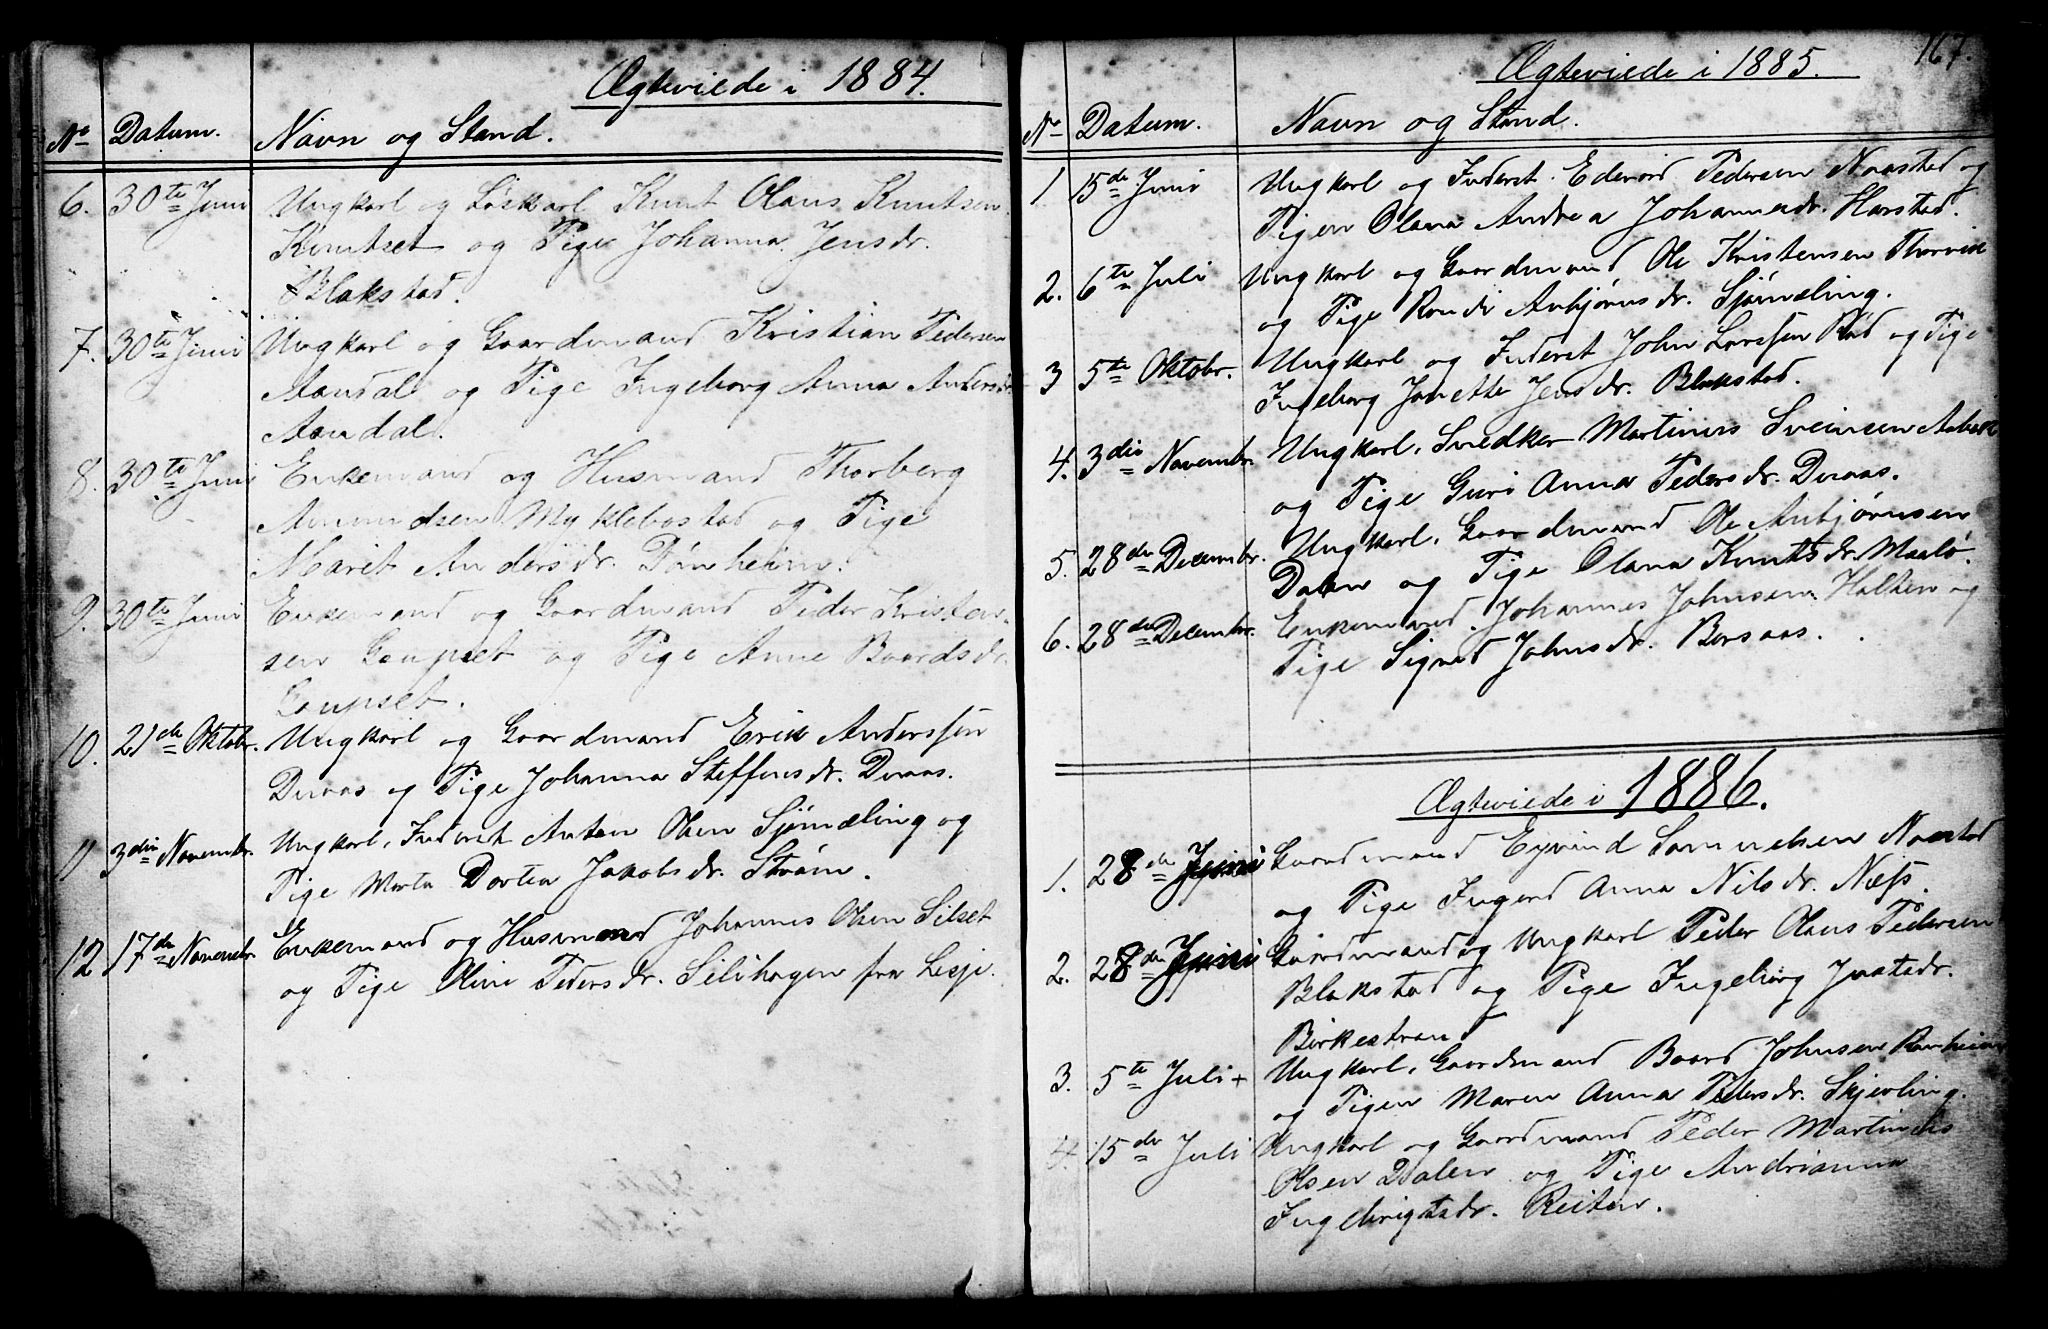 Ægteviede i 1884.
No Datum. Navn og Stand.
6. 30te Juni Ungkarl og Løskarl Knut Olaus Knutsen
og Pige Johanna Jensdr.
Blakstad.
7. 30te Juni Ungkarl og Gaardmand Kristian Pedersen
Aandal og Pige Ingeborg Anna Andersdr.
Aandal.
8. 30te Juni Enkemand og Husmand Thorberg
Amundsen Myklebostad og Pige
Marit Andersdr. Dønheim.
9. 30te Juni Enkemand og Gaardmand Peder Kristen-
sen Goupset og Pige Anne Baardsdr.
Goupset.
10. 21de Oktobr. Ungkarl og Gaardmand Erik Anderssen
Duaas og Pige Johanna Steffensdr. Duaas.
11 3die Novembr. Ungkarl, Inderst Anton Olsen Sjømæling og
Pige Marta Dortea Jakobsdr. Strøm.
12 17de Novembr. Enkemand og Husmand Johannes Olsen Silset
og Pige Oline Pedersdr. Silihagen fra Lesje.
167.
Ægteviede i 1885.
No Datum. Navn og Stand.
1. 15de Juni Ungkarl og Inderst. Edevard Pedersen Naastad og
Pigen Olava Andrea Johannesdr. Harstad.
2. 6te Juli Ungkarl og Gaardmand Ole Kristensen Thorvik
og Pige Randi Anbjørnsdr. Sjømæling.
3 5te Oktobr. Ungkarl og Inderst John Larssen Rød og Pige
Ingeborg Janette Jensdr. Blakstad.
4. 3die Novembr. Ungkarl, Snedker Martinus Sveinsen
og Pige Guri Anna Pedersdr. Duaas.
5. 28de Decembr. Ungkarl, Gaardmand Ole Anbjørnsen
Dalen og Pige Olava Knutsdr. Maalø.
6. 28de Decembr. Enkemand. Johannes Johnsen Holten og
Pige Sigrid Johnsdr. Borsaas.
Ægteviede i 1886.
1. 28de Juni Gaardmand Eyvind Samuelsen Naastad
og Pige Ingerd Anna Nilsdr. Næss.
2. 28de Juni Gaardmand og Ungkarl Peder Olaus Pedersen
Blakstad og Pige Ingeborg Jvatsdr.
Birkestrand
3. 5te Juli + Ungkarl, Gaardmand Baard Johnsen Ranheim
og Pigen Maren Anna Pedersdr. Skjevling.
4. 15de Juli Ungkarl og Gaardmand Peder Martinus
Olsen Dalen og Pige Andrianna
Ingebrigtsdr. Reiten.